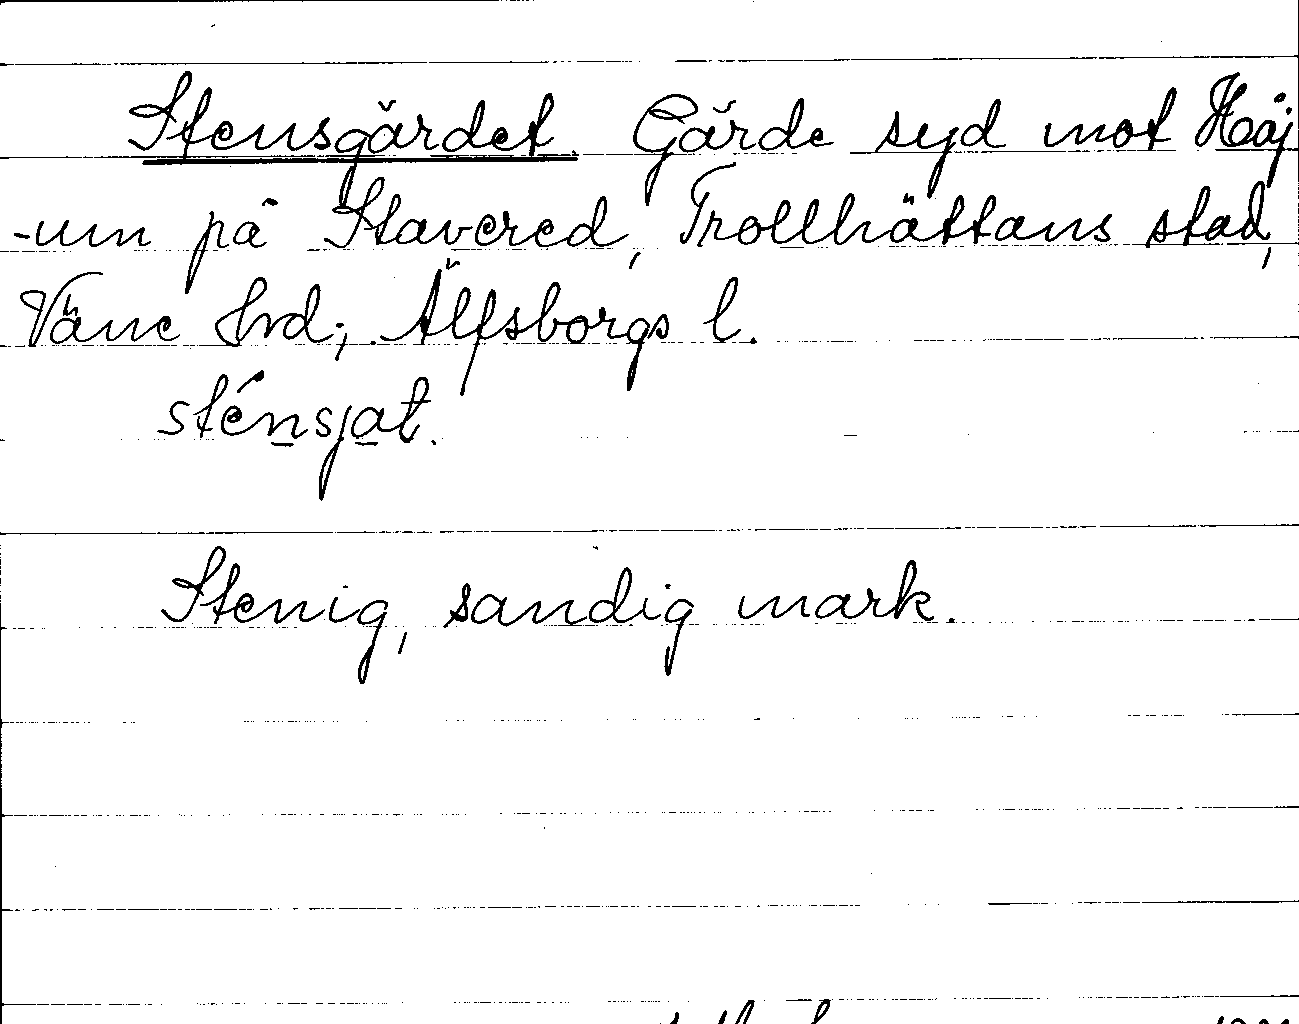 Stensgärdet. Gärde syd mot Håj
-um på Stavered, Trollhättans stad,
Väne hrd; Älfsborgs l.
sténsjat.
Stenig, sandig mark.